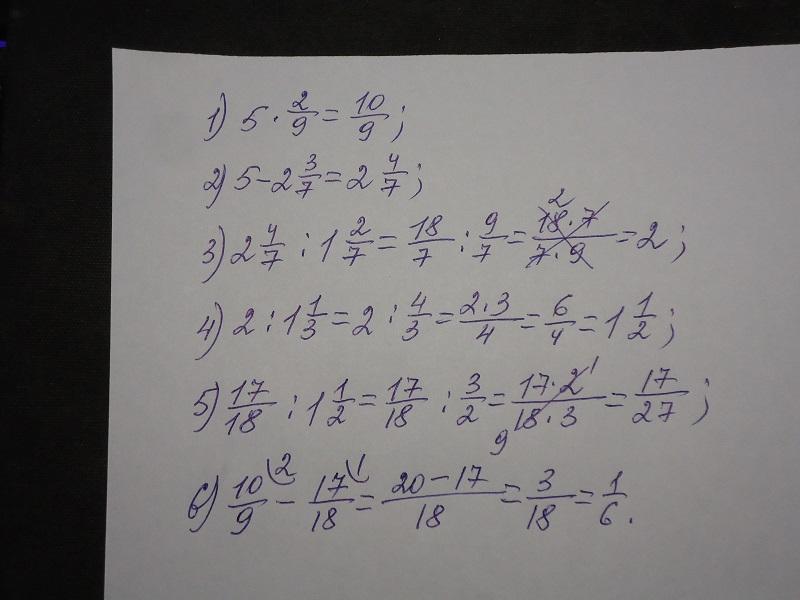 1) 5 · 2/9 = 10/9 ;
2) 5 - 2 3/7 = 2 4/7 ;
3) 2 4/7 : 1 2/7 = 18/7 : 9/7 = 2 18·7/7·9 = 2 ;
4) 2 : 1 1/3 = 2 : 4/3 = 2·3/4 = 6/4 = 1 1/2 ;
5) 17/18 : 1 1/2 = 17/18 : 3/2 = 17·2 1/18·3 9 = 17/27 ;
6) 10/9 \2 - 17/18 \1 = 20-17/18 = 3/18 = 1/6 .